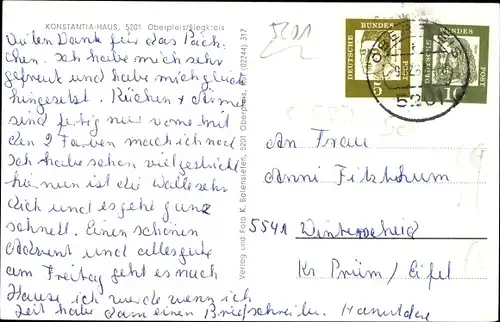 KONSTANTIA-HAUS, 5201 Oberpleis/Siegkreis
Vielen Dank für das Päck-
chen. Ich habe mich sehr
gefreut und habe mich gleich
hingesetzt. Rücken + Ärmel
sind fertig nur vorne mit
den 2 Farben mach ich noch
Ich habe schon viel gestrickt
hier nun ist die Wolle sehr
dick und es geht ganz
schnell. Einen schönen
Advent und alles gute
am Freitag geht es nach
Hause ich werde wenn ich
Zeit habe dann einen Brief schreiben.
Verlag und Foto K. Batensiefen, 5201 Oberpleis, Ruf (02244) 317
5201
DEUTSCHE BUNDESPOST 5
DEUTSCHE BUNDESPOST 10
5201
An Frau
Anni Fitzthum
5541 Winterscheid
Kr Prüm / Eifel